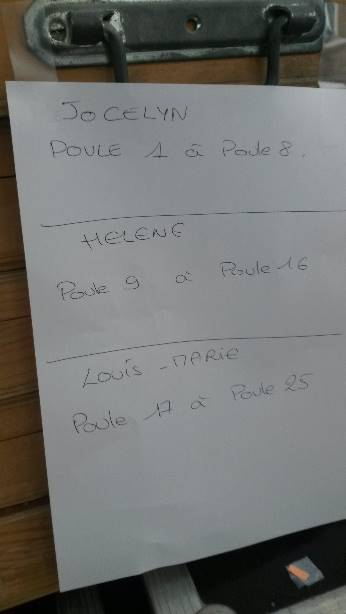 JOCELYN
POULE 1 à Poule 8.
HELENE
Poule 9 à Poule 16
LOUIS - MARIE
Poule 17 à Poule 25